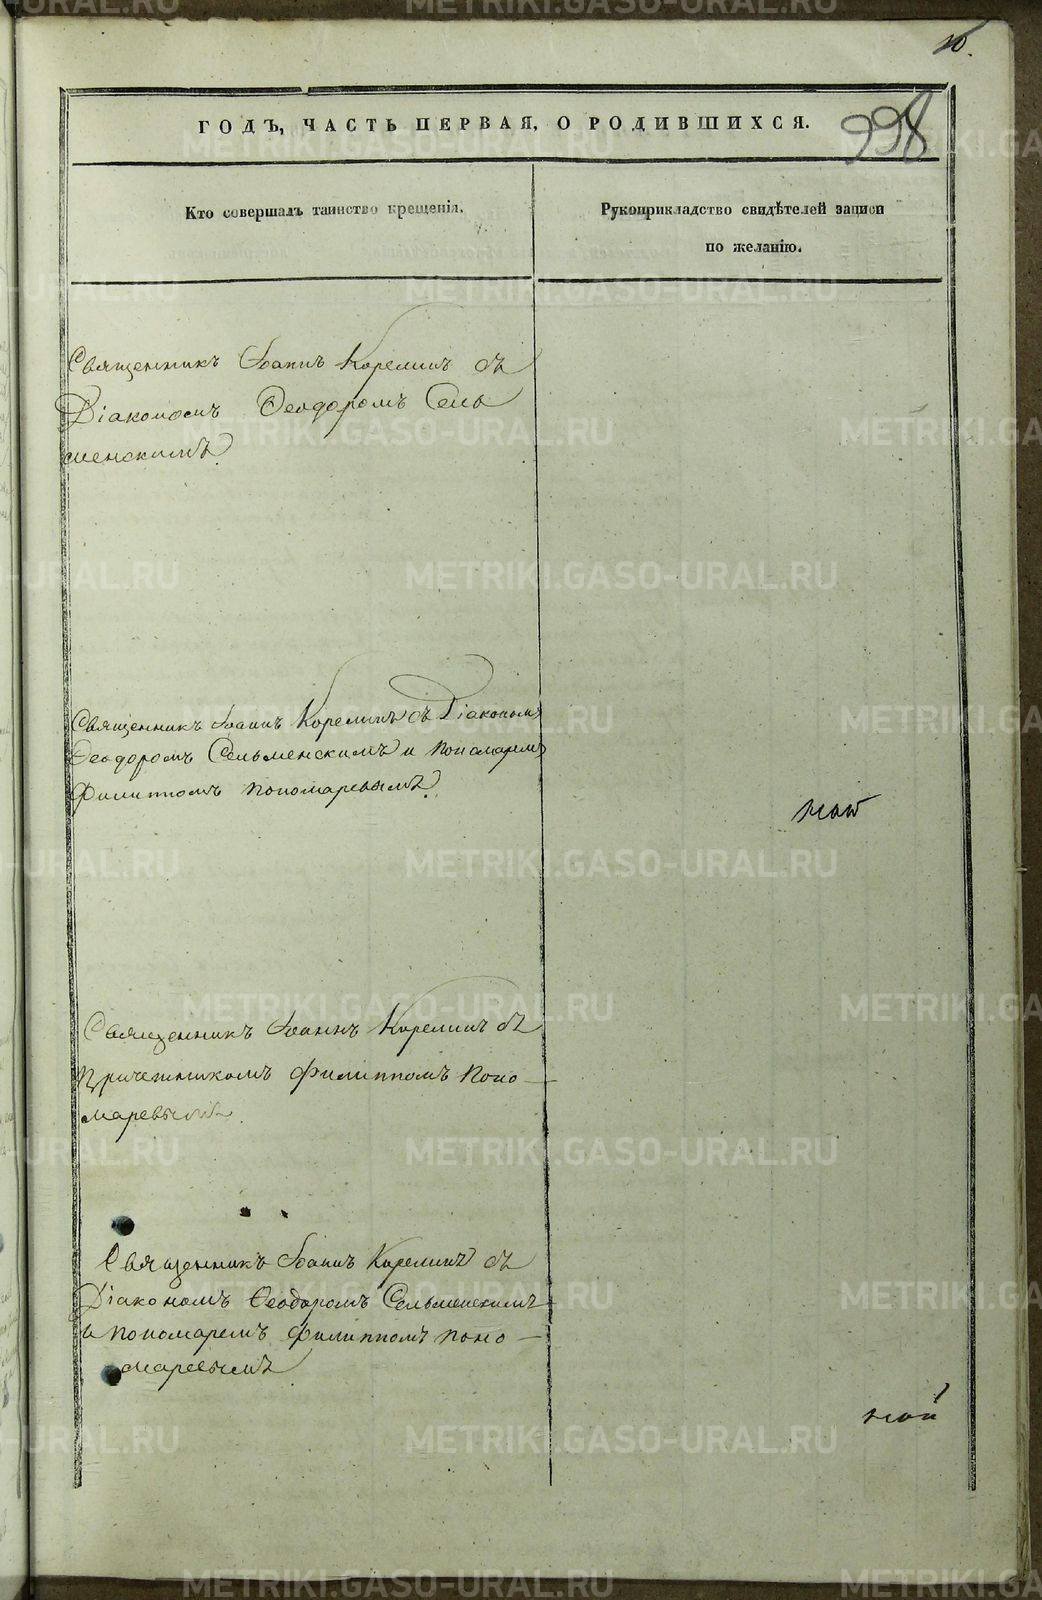 10.
998
ГОДЪ, ЧАСТЬ ПЕРВАЯ, О РОДИВШИХСЯ.
Кто совершалъ таинство крещенія.
Рукоприкладство свидѣтелей записи
по желанію.
Священникъ Іоаннъ Корелинъ съ
Діакономъ Ѳеодоромъ Сель
менскимъ.
Священникъ Іоаннъ Корелинъ съ Діакономъ
Ѳеодоромъ Сельменскимъ и пономаремъ
Филиппомъ Пономаревымъ.
Священникъ Іоаннъ Корелинъ съ
Причетникомъ Филиппомъ Поно-
маревымъ.
Священникъ Іоаннъ Корелинъ съ
Діакономъ Ѳеодоромъ Сельменскимъ
и пономаремъ Филиппомъ Поно-
маревымъ
METRIKI.GASO-URAL.RU